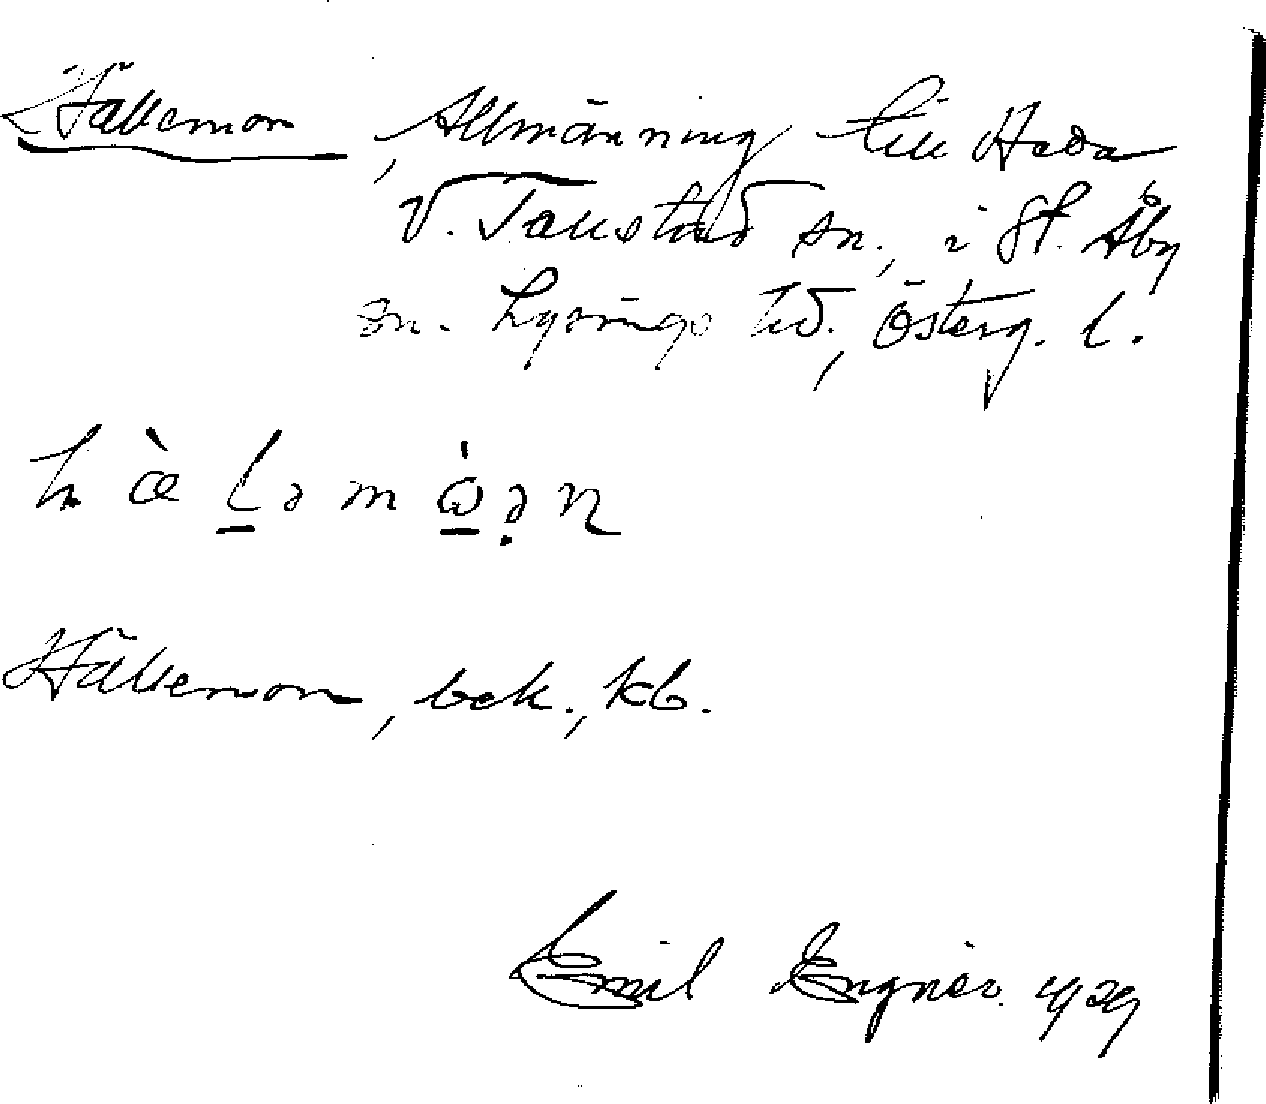 Hällemon, Allmänning till Heda
V. Tollstad sn., i St. Åby
sn. Lysings hd., Österg. l.
h œ̀ l̠ ə m ò̠ ə̣ n
Hällemon, bek., kb.
Emil Engnér. 1929